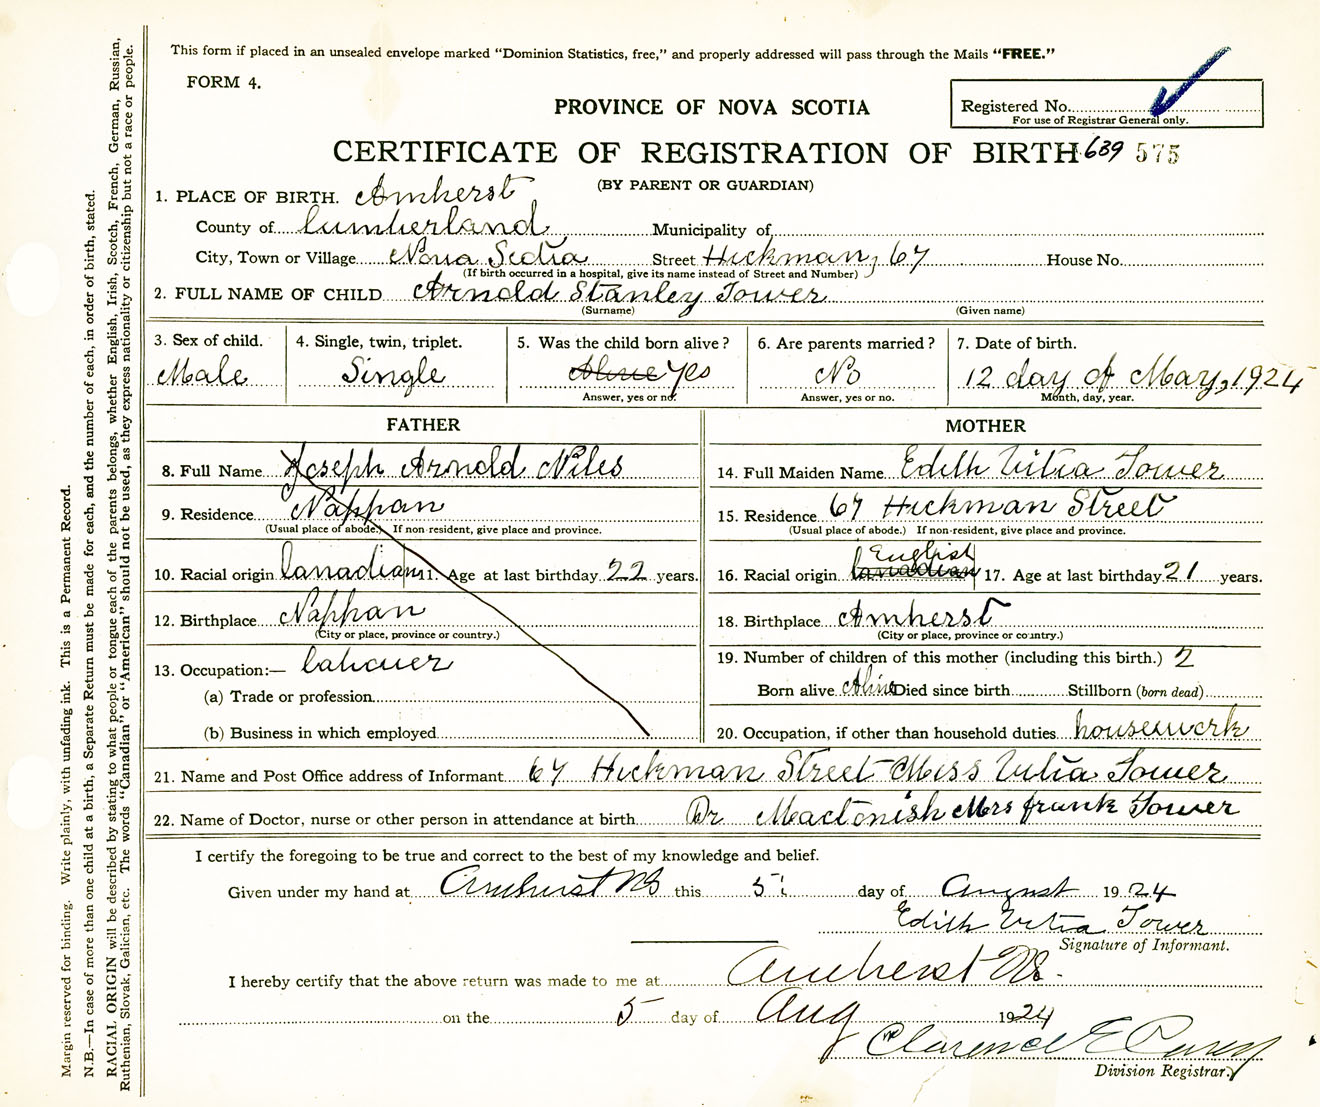 This form if placed in an unsealed envelope marked "Dominion Statistics, free," and properly addressed will pass through the Mails "FREE."
FORM 4.
PROVINCE OF NOVA SCOTIA
Registered No.
For use of Registrar General only.
CERTIFICATE OF REGISTRATION OF BIRTH 639 575
(BY PARENT OR GUARDIAN)
1. PLACE OF BIRTH. Amherst
County of Cumberland Municipality of
City, Town or Village Nova Scotia Street Hickman, 67 House No.
(If birth occurred in a hospital, give its name instead of Street and Number)
2. FULL NAME OF CHILD Arnold Stanley Tower
(Surname) (Given name)
3. Sex of child. 4. Single, twin, triplet. 5. Was the child born alive? 6. Are parents married? 7. Date of birth.
Male Single Alive Yes No 12 day of May, 1924
Answer, yes or no. Answer, yes or no. Month, day, year.
FATHER MOTHER
8. Full Name Joseph Arnold Niles 14. Full Maiden Name Edith Vitia Tower
9. Residence Nappan 15. Residence 67 Hickman Street
(Usual place of abode.) If non-resident, give place and province. (Usual place of abode.) If non-resident, give place and province.
English
10. Racial origin Canadian 11. Age at last birthday 22 years. 16. Racial origin Canadian 17. Age at last birthday 21 years.
12. Birthplace Nappan 18. Birthplace Amherst
(City or place, province or country.) (City or place, province or country.)
13. Occupation:— Labouer 19. Number of children of this mother (including this birth.) 2
(a) Trade or profession Born alive Alive Died since birth Stillborn (born dead)
(b) Business in which employed 20. Occupation, if other than household duties housework
21. Name and Post Office address of Informant 67 Hickman Street Miss Vitia Tower
22. Name of Doctor, nurse or other person in attendance at birth Dr Mactonish Mrs frank Tower
I certify the foregoing to be true and correct to the best of my knowledge and belief.
Given under my hand at Amherst NS this 5 day of August 1924
Edith Vitia Tower
Signature of Informant.
I hereby certify that the above return was made to me at Amherst NS.
on the 5 day of Aug 1924
Clarence E Casey
Division Registrar.
Margin reserved for binding. Write plainly, with unfading ink. This is a Permanent Record.
N.B.—In case of more than one child at a birth, a Separate Return must be made for each, and the number of each, in order of birth, stated.
RACIAL ORIGIN will be described by stating to what people or tongue each of the parents belongs, whether English, Irish, Scotch, French, German, Russian,
Ruthenian, Slovak, Galician, etc. The words "Canadian" or "American" should not be used, as they express nationality or citizenship but not a race or people.